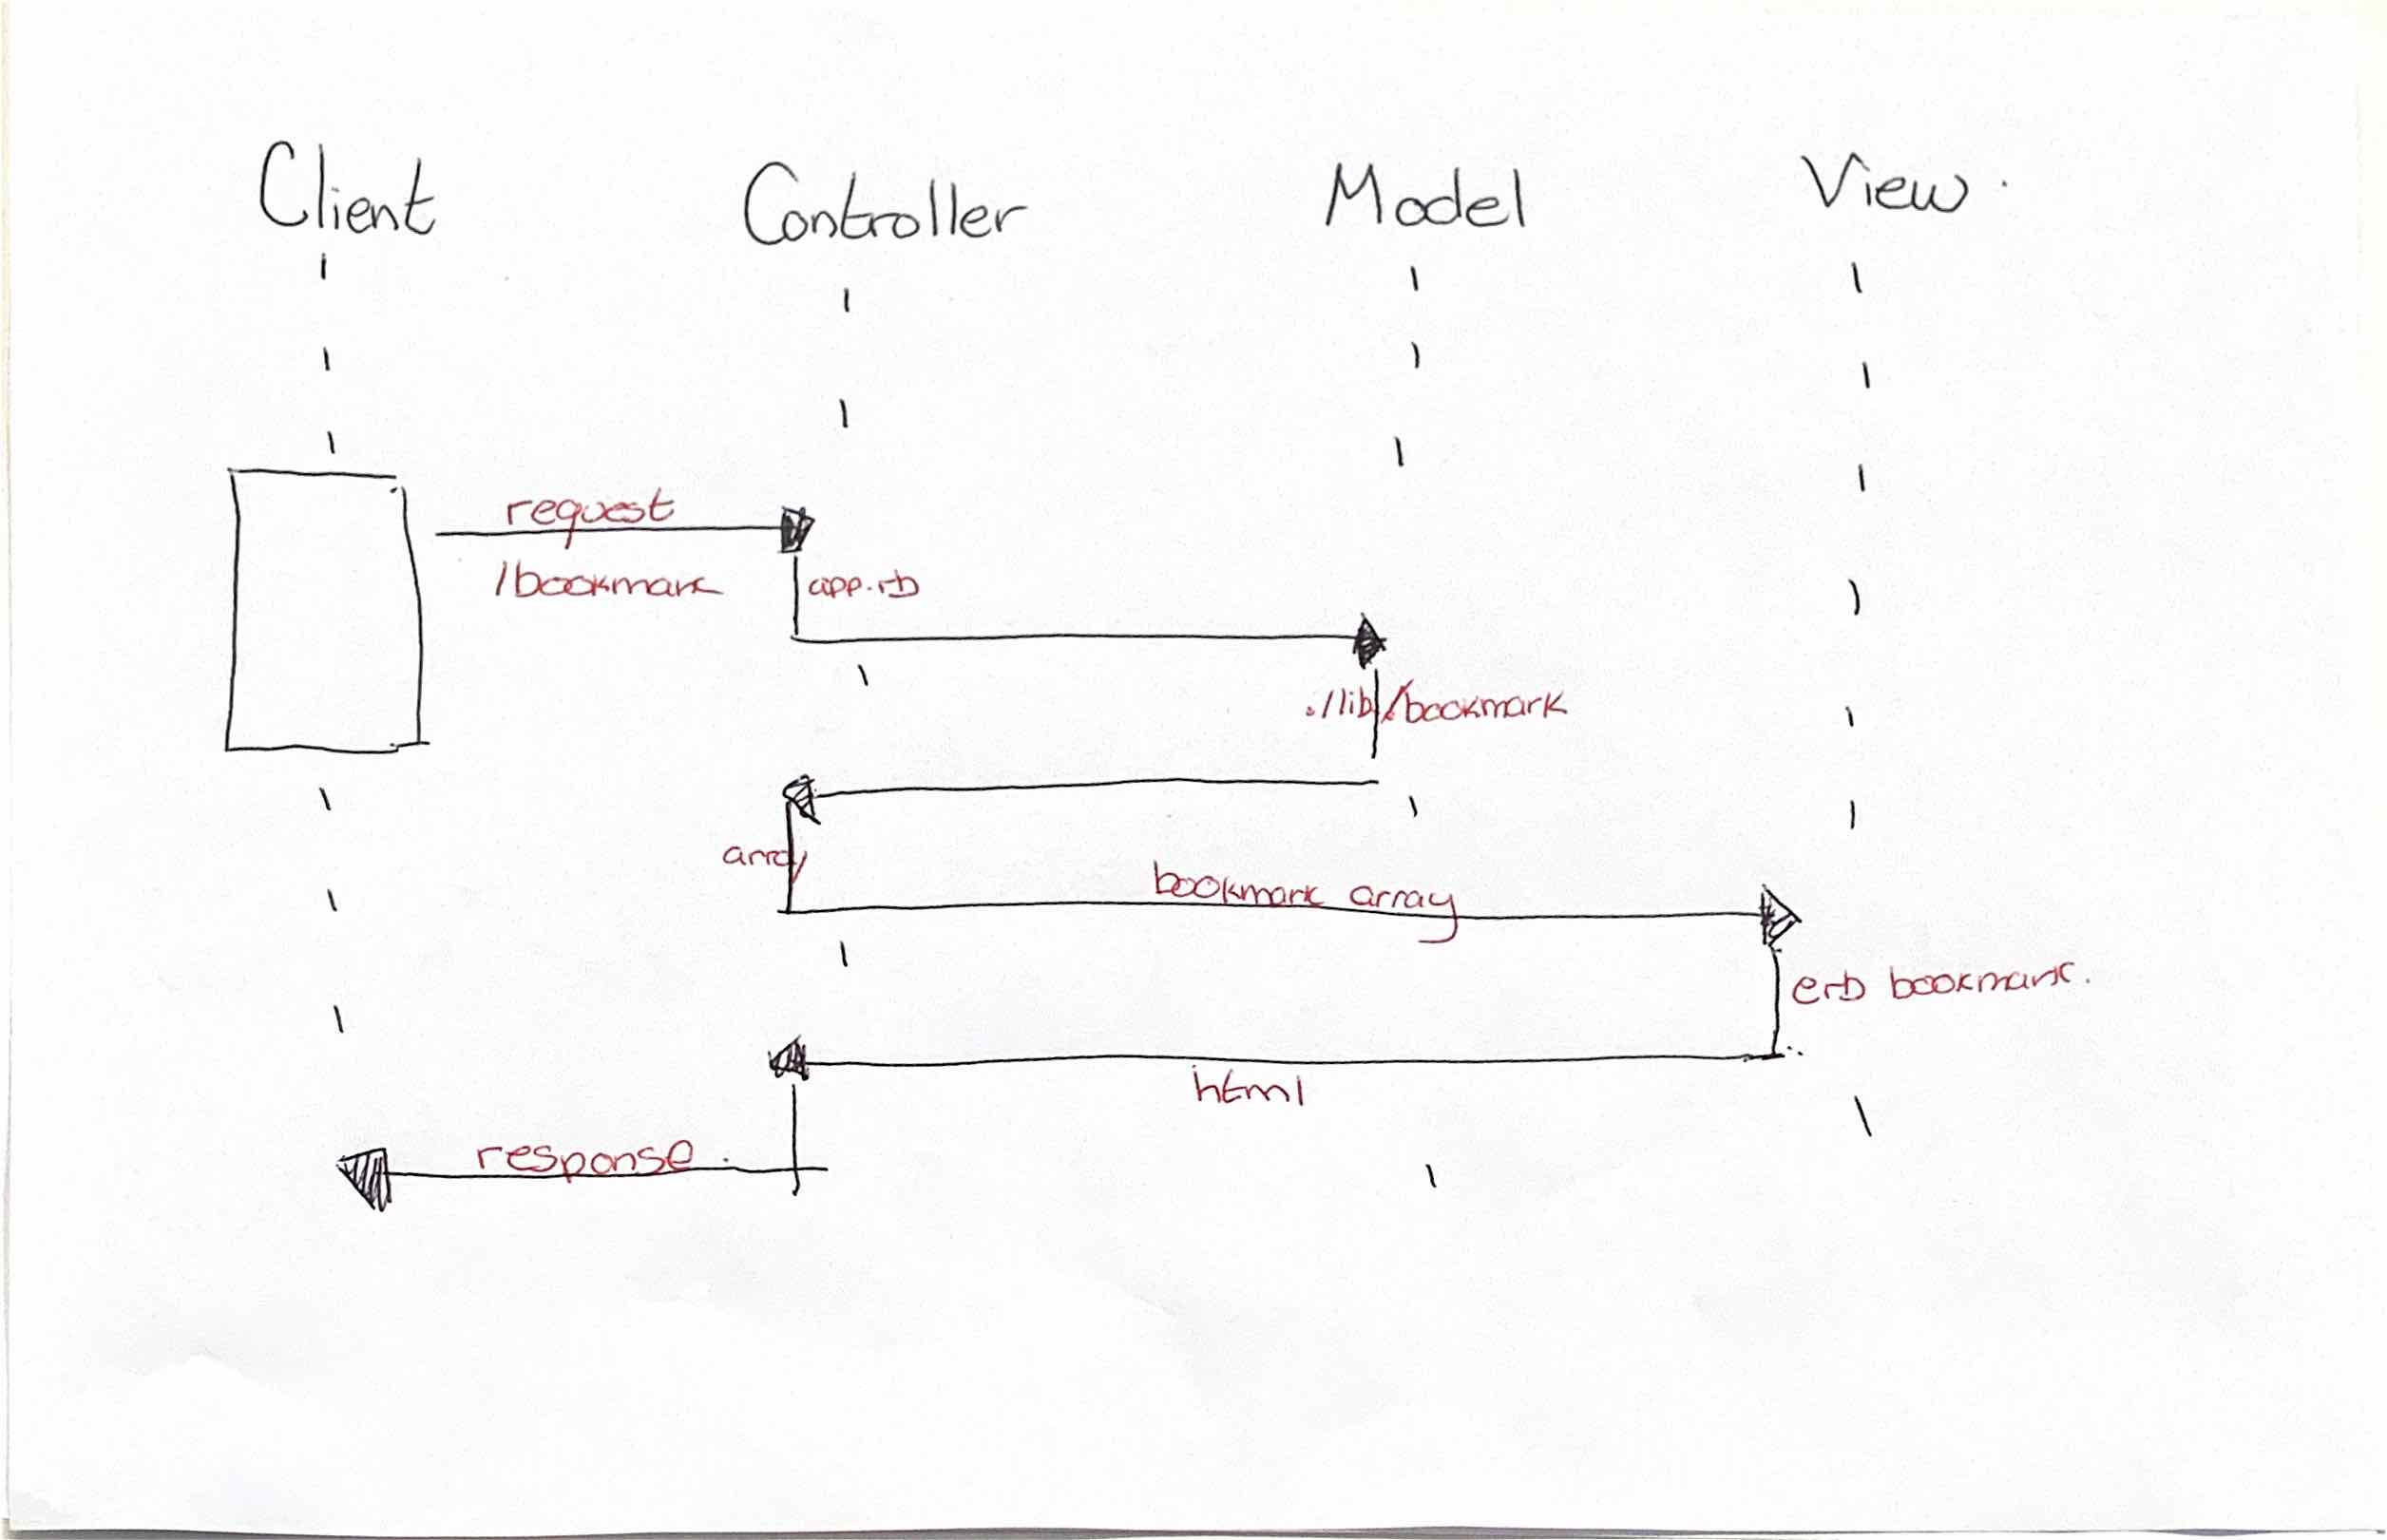 Client Controller Model View
request
/bookmark
app.rb
./lib/bookmark
array
bookmark array
erb bookmark.
html
response